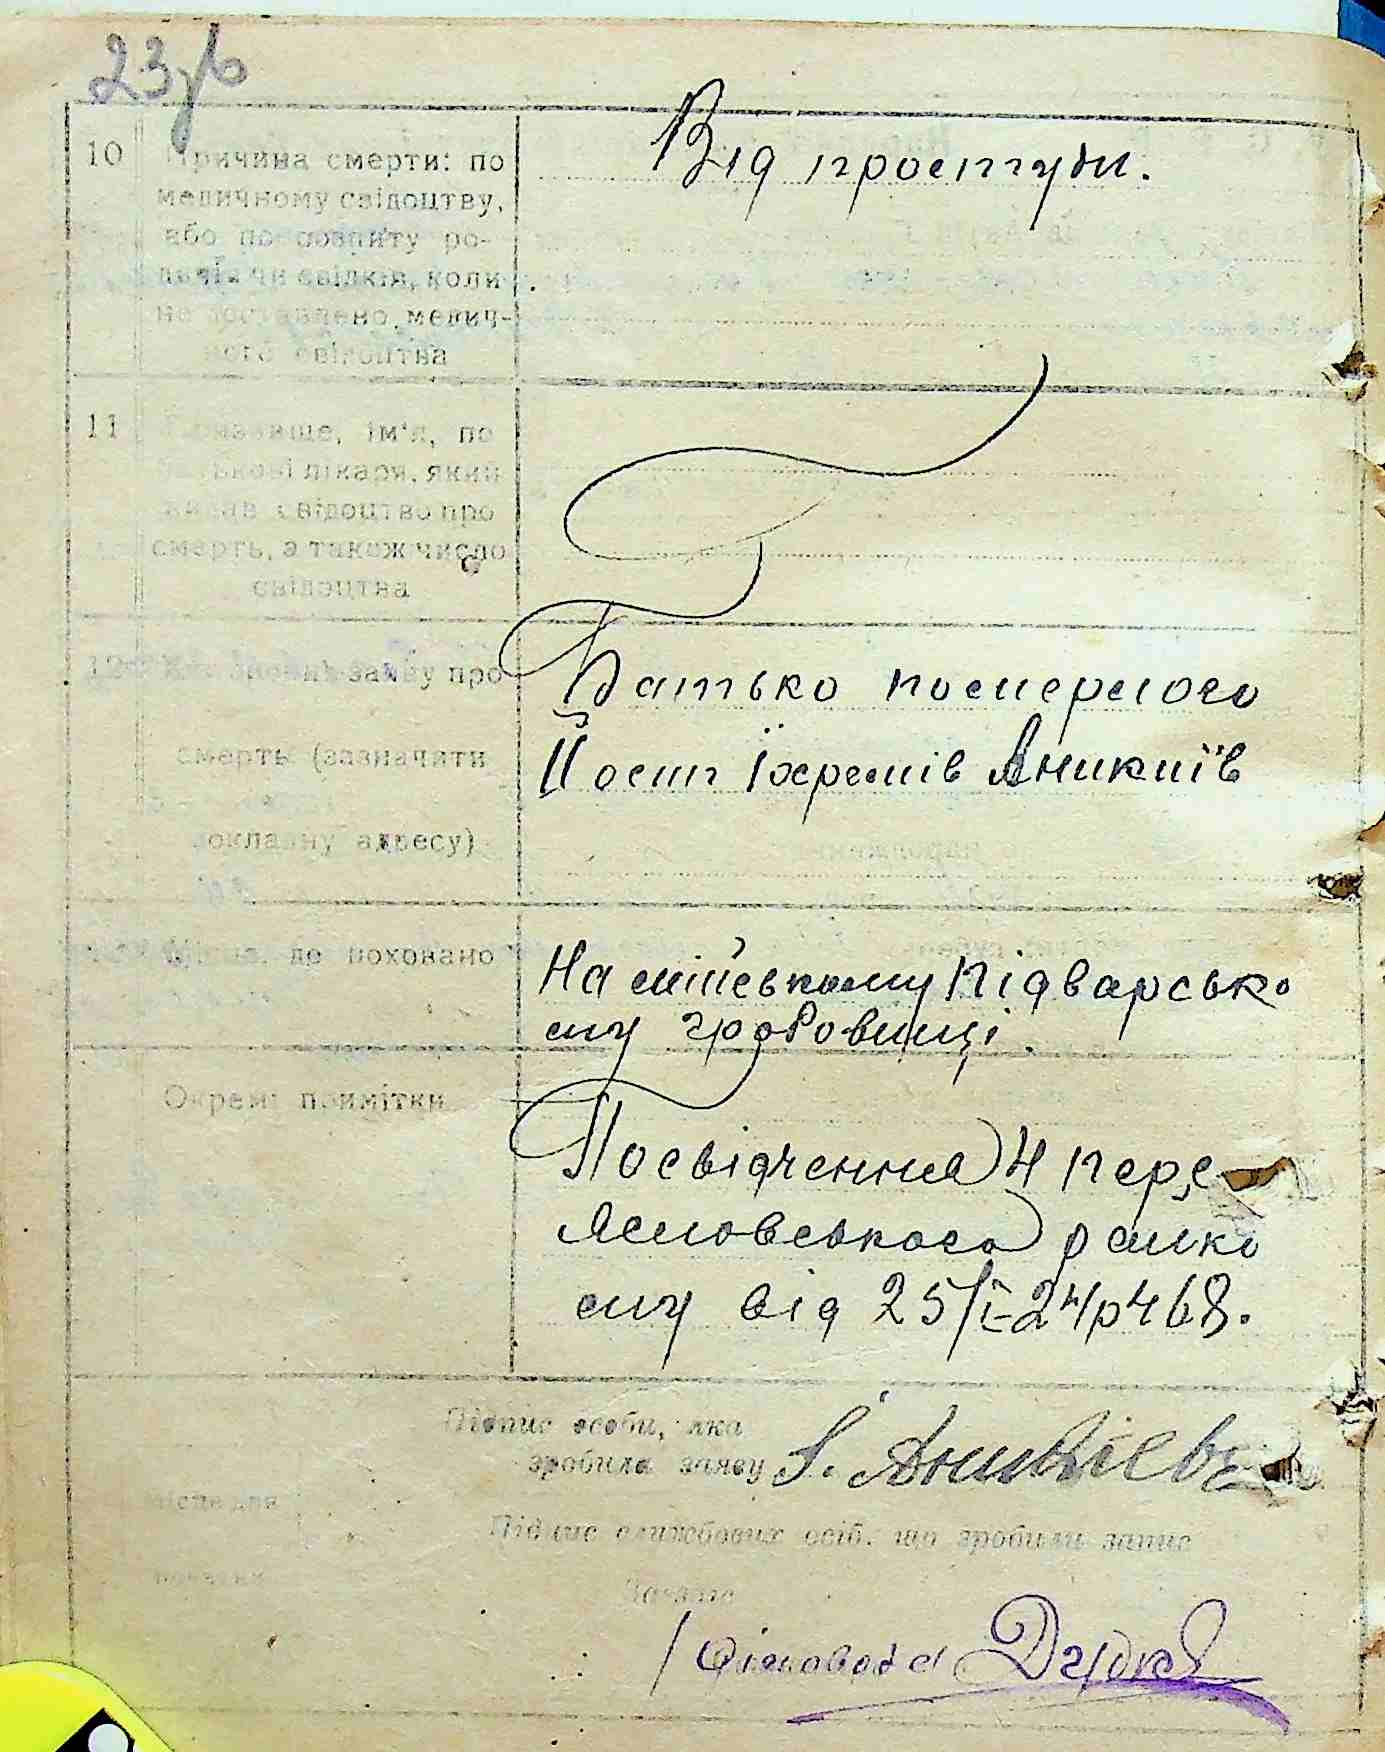 23 зв
10
Причина смерти: по
медичному свідоцтву,
або по опиту ро-
дичів чи свідків, коли
не доставлено медич-
ного свідоцтва
Від простуди.
11
Прізвище, ім'я, по
батькові лікаря, який
видав свідоцтво про
смерть, а також число
свідоцтва
12
заяву про
смерть (зазначити
докладну адресу)
Батько посмерлого
Йосип Їхремів Аникиїв
де поховано
На міїському Підварсько
му гробовищі.
Окремі примітки
Посвідчення Перe
яславського райко
му від 25/I-24р 468.
Підпис особи, яка
зробила заяву
Підпис службових осіб, що зробили запис
Діловод